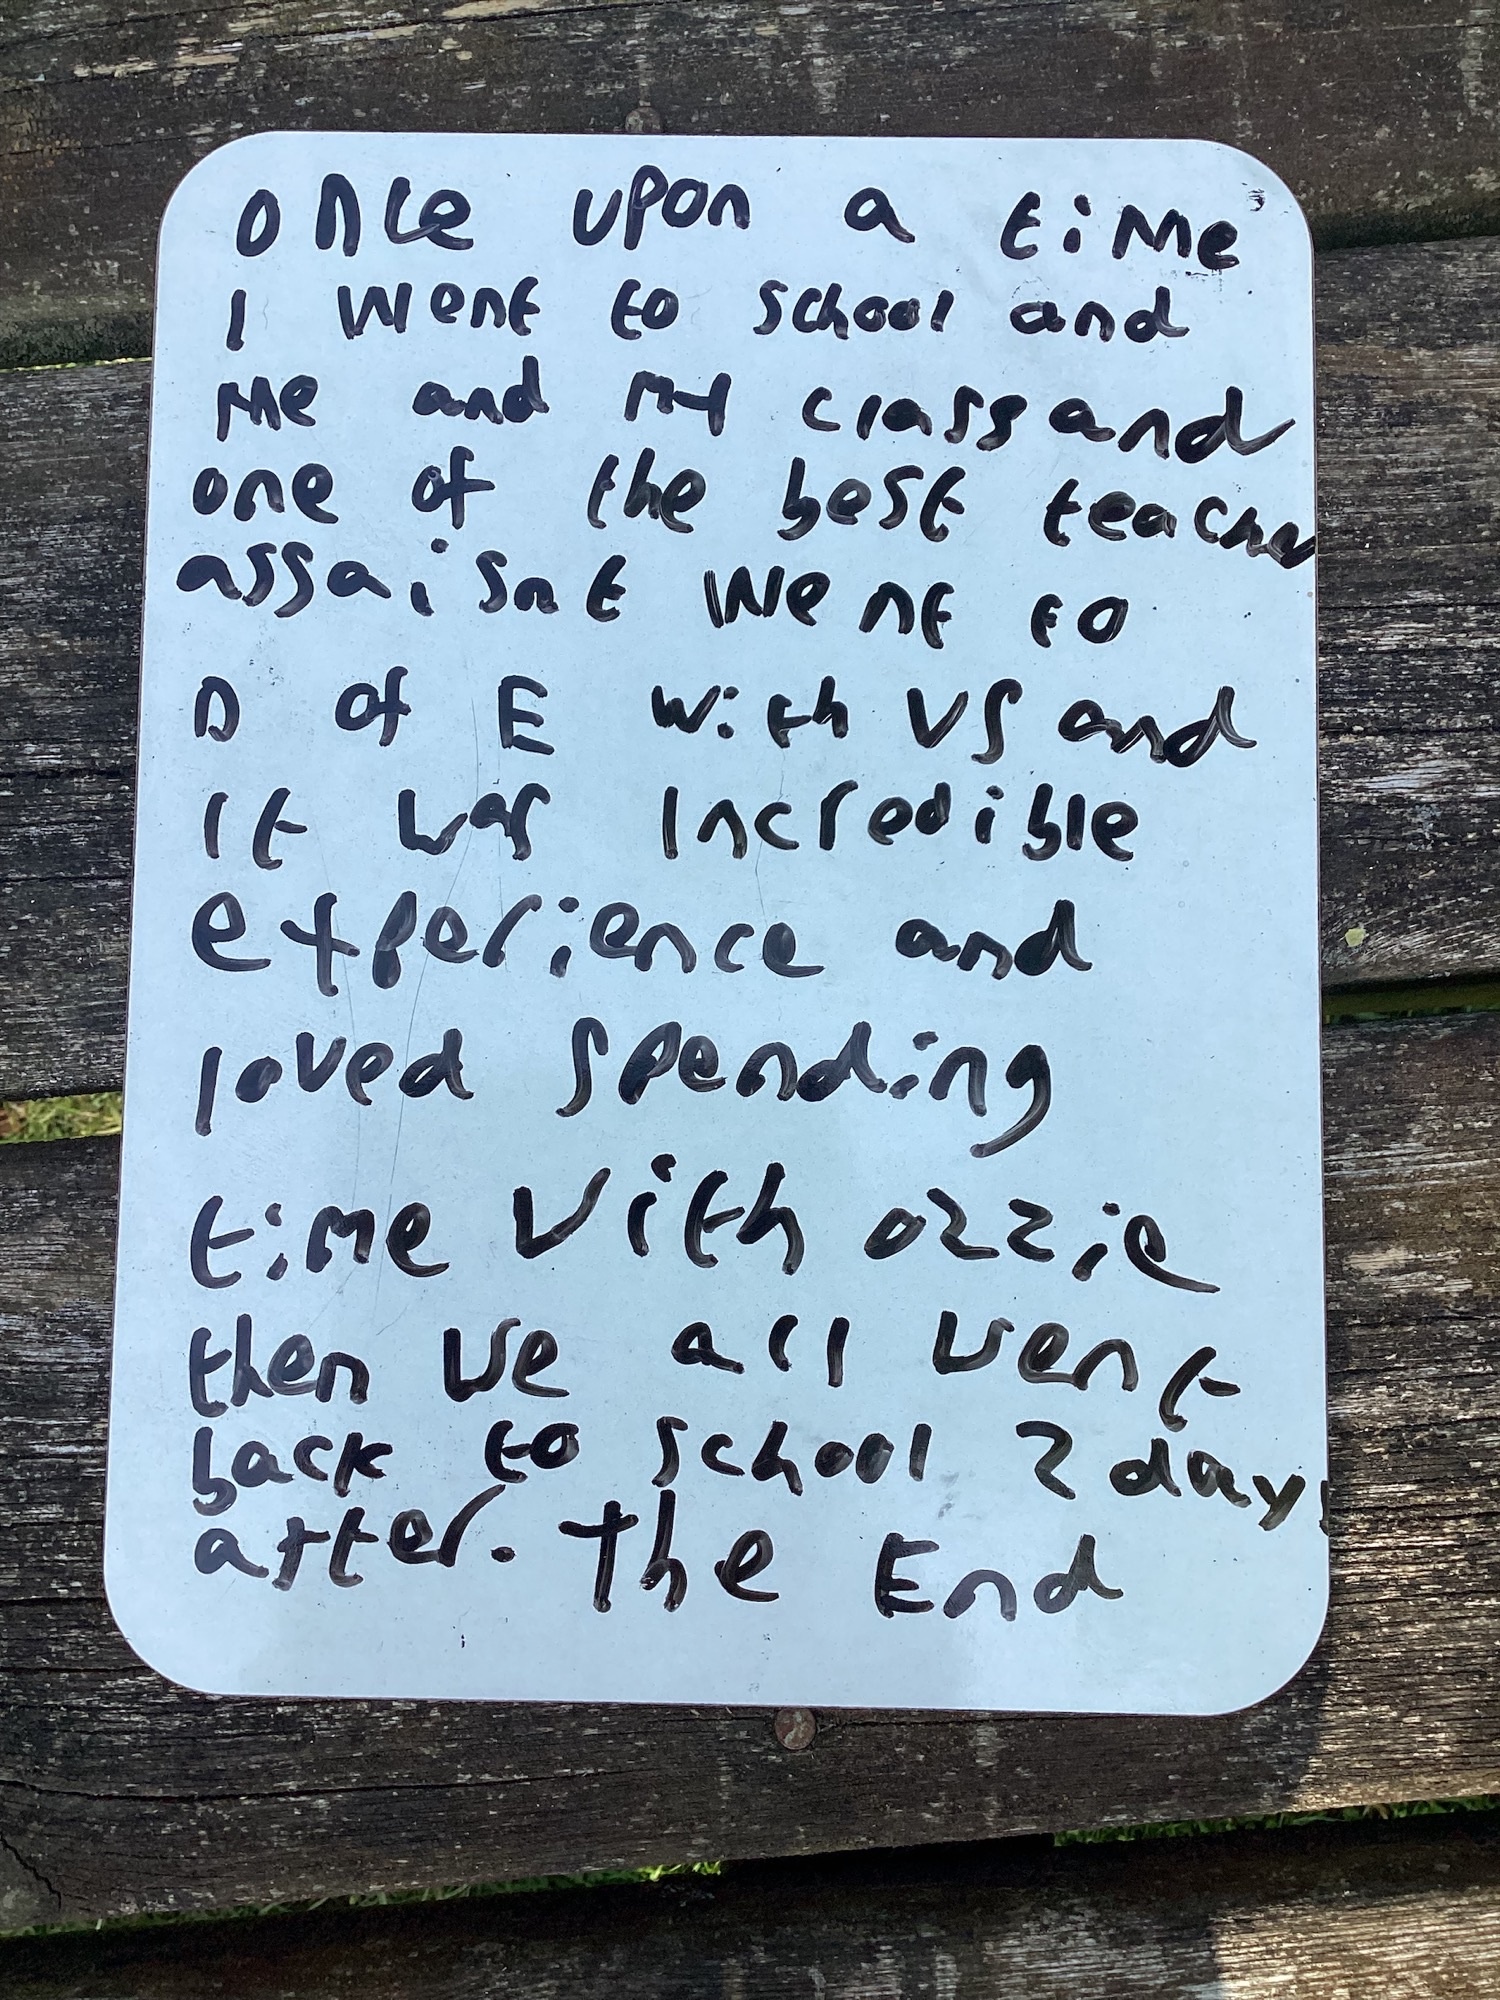 once upon a time
I went to school and
me and my class and
one of the best teacher
assaisnt went to
D of E with VS and
It was Incredible
experience and
loved spending
time with ozzie
then we all went
back to school 2 days
after. The End